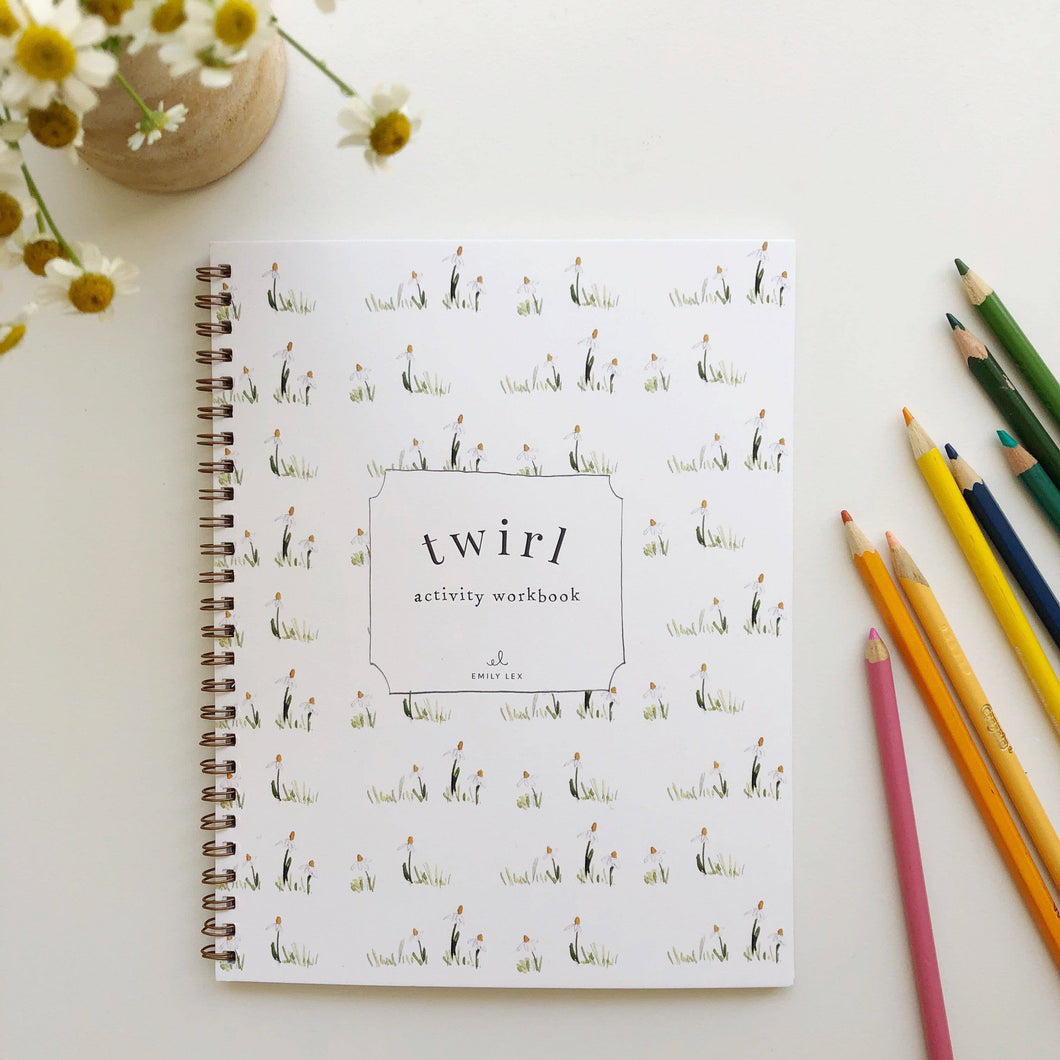 twirl
activity workbook
el
EMILY LEX
Crayola